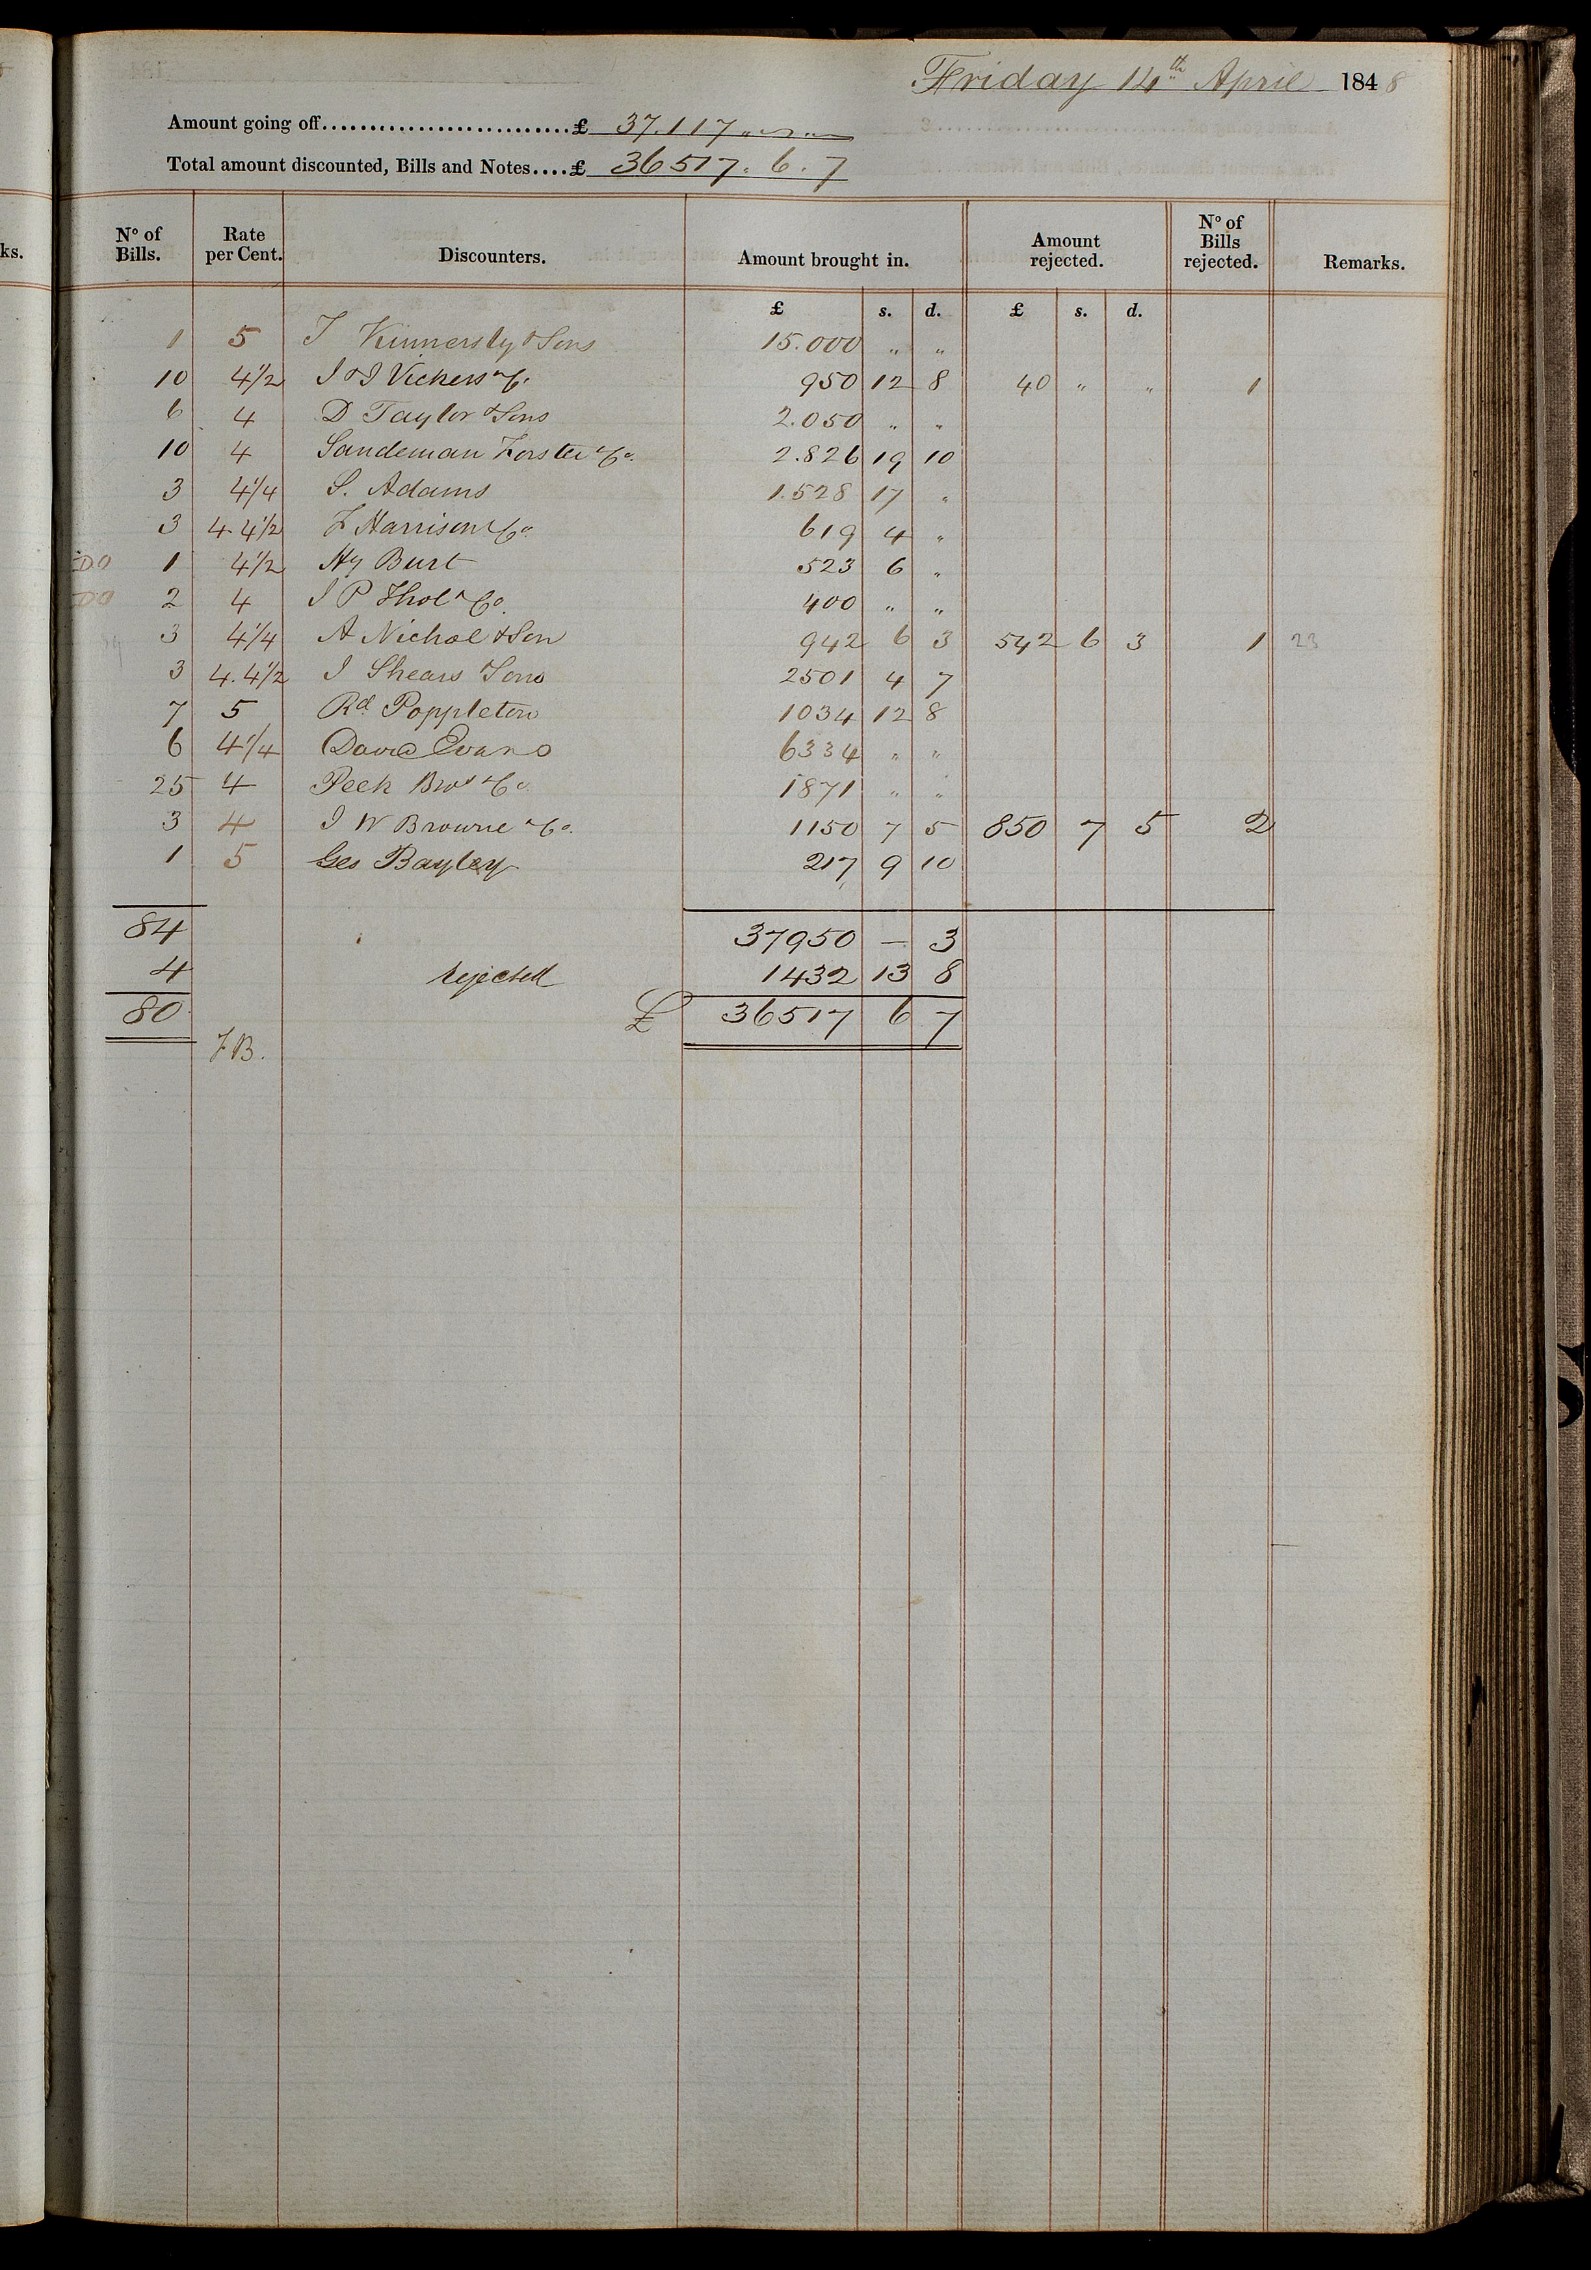 ks.
Friday 14th April 1848
Amount going off..........................£ 37.117 " " "
Total amount discounted, Bills and Notes....£ 36517. 6. 7
No of Bills. Rate per Cent. Discounters. Amount brought in. Amount rejected. No of Bills rejected. Remarks.
£ s. d. £ s. d.
1 5 T Kinnersly & Sons 15.000 " "
10 4 1/2 J & J Vickers & Co 950 12 8 40 " " 1
6 4 D Taylor & Sons 2.050 " "
10 4 Sandeman Forster & Co. 2.826 19 10
3 4 1/4 S. Adams 1.528 17 "
3 4. 4 1/2 F Harrison & Co. 619 4 "
DO 1 4 1/2 Hy Burt 523 6 "
DO 2 4 J P & Co. 400 " "
3 4 1/4 A Nichol & Son 942 6 3 542 6 3 1 23
3 4. 4 1/2 J Shears Sons 2501 4 7
7 5 Rd Poppleton 1034 12 8
6 4 1/4 David Evans 6334 " "
25 4 Peek Bros & Co. 1871 " "
3 4 J W Browne & Co. 1150 7 5 850 7 5 2
1 5 Geo Bayley 217 9 10
84 37950 — 3
4 rejected 1432 13 8
80 £ 36517 6 7